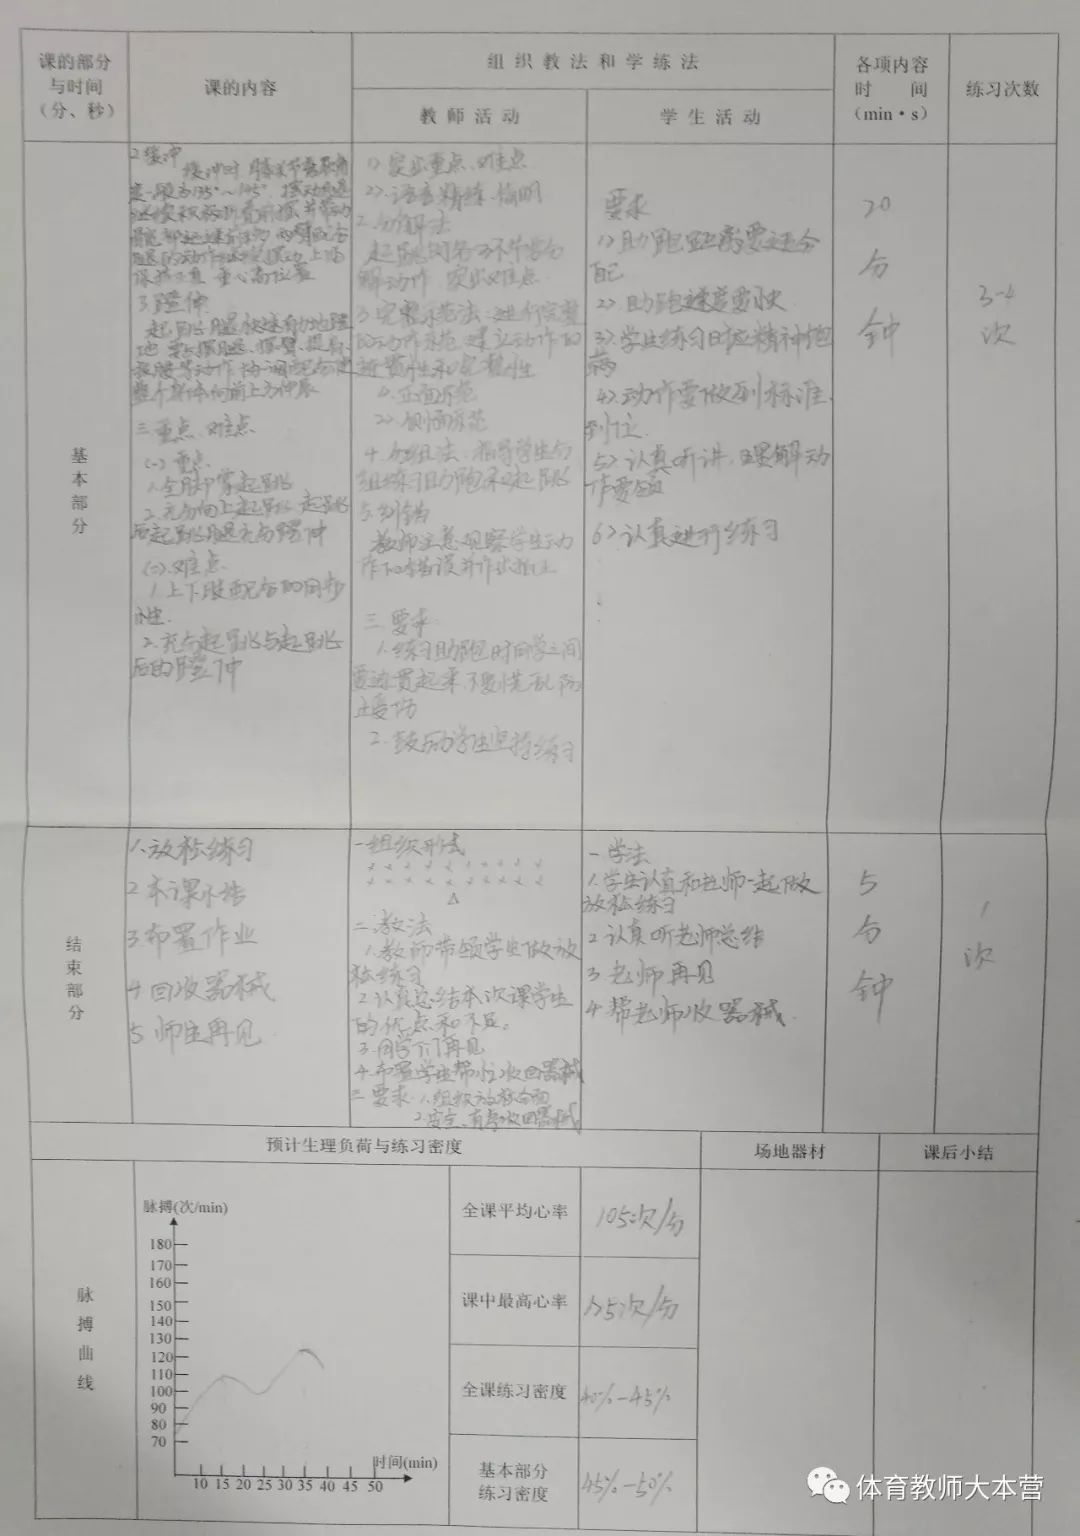 课的部分
与时间
（分、秒）
课的内容
组织教法和学练法
教师活动
学生活动
各项内容
时 间
（min·s）
练习次数
基本部分
2.缓冲
3.蹬伸
三.重点、难点
(一)重点
1.全脚掌起跳
2.充分向上起跳,起跳
后起跳腿充分蹬伸
(二).难点
1.上下肢配合的同步
性.
2.充分起跳与起跳
后的蹬伸
1>突出重点、难点
2>.语言精练、简明
2.分解法
解动作,突出难点.
3.完整示范法:进行完整
的动作示范,建立动作的
连贯性和完整性
1.正面示范
2>.侧面示范
4.分组法:指导学生分
组练习助跑和起跳
5.纠错
教师注意观察学生动
三.要求:
1.练习助跑时同学之间
要连贯起来,不要慌乱防
止受伤
2.鼓励学生坚持练习
要求
1>助跑距离要适合
自己
2>.助跑速度要快
3>学生练习时应精神饱
满
4>动作要做到标准、
到位.
5>认真听讲,理解动
作要领
6>认真进行练习
20
分
钟
3-4
次
结束部分
1.放松练习
2.本课小结
3.布置作业
4.回收器械
5.师生再见
一组织形式
二.教法
1.教师带领学生做放
松练习
2.认真总结本次课学生
的优点和不足。
3.同学们再见
4.布置学生帮忙收回器械
三要求:1.组织放松全面
2.安全、有序收回器械
一.学法
1.学生认真和老师一起做
放松练习
2.认真听老师总结
3.老师再见
4.帮老师收器械.
5
分
钟
1
次
预计生理负荷与练习密度
场地器材
课后小结
脉搏曲线
脉搏(次/min)
180
170
160
150
140
130
120
110
100
90
80
70
10 15 20 25 30 35 40 45 50
时间(min)
全课平均心率
105次/分
课中最高心率
125次/分
全课练习密度
40%-45%
基本部分
练习密度
45%-50%
体育教师大本营